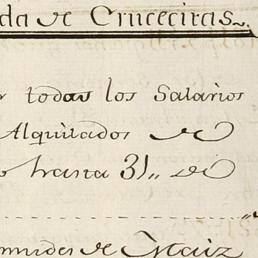 da de Crucecitas
todas los Salarios
Alquilados de
hasta 31,, de
de Maiz